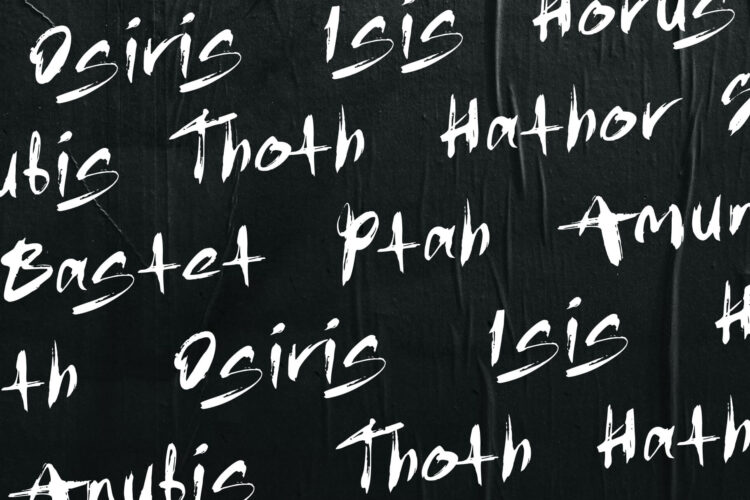 Osiris Isis Horus
ubis Thoth Hathor S
Bastet Ptah Amun
th Osiris Isis H
Anubis Thoth Hath